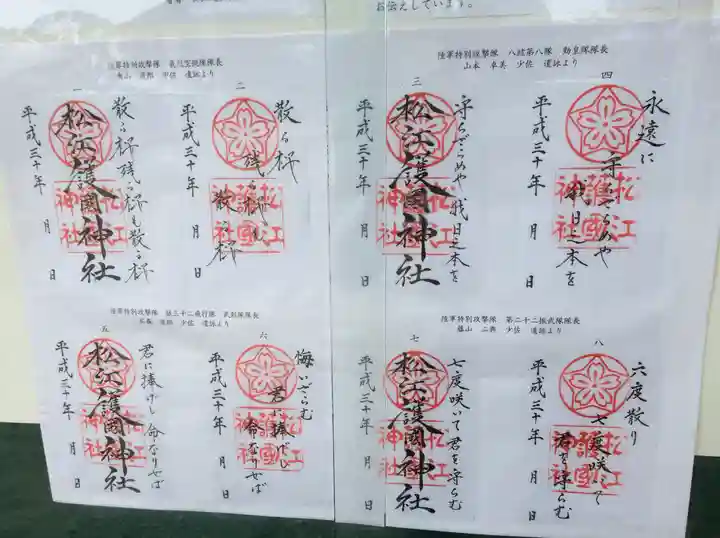 お伝えしています。
陸軍特別攻撃隊
隊長
少佐 遺詠より
一
散る桜残る桜も散る桜
松江護國神社
平成三十年 月 日
二
散る桜
残る桜も
散る桜
松江護國神社
平成三十年 月 日
陸軍特別攻撃隊 八紘第八隊 勤皇隊隊長
山本 卓美 少佐 遺詠より
三
守らざらめや我日之本を
松江護國神社
平成三十年 月 日
四
永遠に
守らざらめや
我日之本を
松江護國神社
平成三十年 月 日
陸軍特別攻撃隊 第三十二飛行隊 武剋隊隊長
少佐 遺詠より
五
君に捧げし命なりせば
松江護國神社
平成三十年 月 日
六
悔いざらむ
君に捧げし
命なりせば
松江護國神社
平成三十年 月 日
陸軍特別攻撃隊 第二十二振武隊隊長
藤山 二典 少佐 遺詠より
七
七度咲いて君を守らむ
松江護國神社
平成三十年 月 日
八
六度散り
七度咲いて
君を守らむ
松江護國神社
平成三十年 月 日